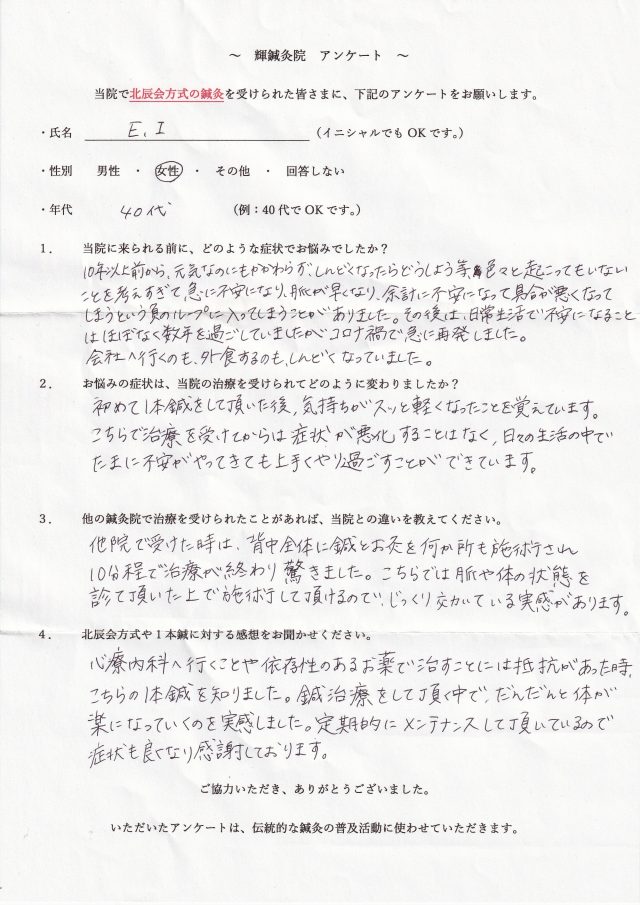 ～ 輝鍼灸院 アンケート ～
当院で北辰会方式の鍼灸を受けられた皆さまに、下記のアンケートをお願いします。
・氏名 E.I （イニシャルでも OK です。）
・性別 男性 ・ 女性 ・ その他 ・ 回答しない
・年代 40代 （例：40 代で OK です。）
1. 当院に来られる前に、どのような症状でお悩みでしたか？
10年以上前から、元気なのにもかかわらず、しんどくなったらどうしよう等、色々と起こってもいない
ことを考えすぎて急に不安になり、脈が早くなり、余計に不安になって具合が悪くなって
しまうという負のループに入ってしまうことがありました。その後は、日常生活で不安になること
はほぼなく数年を過ごしていましたがコロナ禍で急に再発しました。
会社へ行くのも、外食するのも、しんどくなっていました。
2. お悩みの症状は、当院の治療を受けられてどのように変わりましたか？
初めて1本鍼をして頂いた後、気持ちがスッと軽くなったことを覚えています。
こちらで治療を受けてからは症状が悪化することはなく、日々の生活の中で
たまに不安がやってきても上手くやり過ごすことができています。
3. 他の鍼灸院で治療を受けられたことがあれば、当院との違いを教えてください。
他院で受けた時は、背中全体に鍼とお灸を何か所も施術され
10分程で治療が終わり驚きました。こちらでは脈や体の状態を
診て頂いた上で施術して頂けるので、じっくり効いている実感があります。
4. 北辰会方式や 1 本鍼に対する感想をお聞かせください。
心療内科へ行くことや依存性のあるお薬で治すことには抵抗があった時、
こちらの1本鍼を知りました。鍼治療をして頂く中で、だんだんと体が
楽になっていくのを実感しました。定期的にメンテナンスして頂いているので
症状も良くなり感謝しております。
ご協力いただき、ありがとうございました。
いただいたアンケートは、伝統的な鍼灸の普及活動に使わせていただきます。